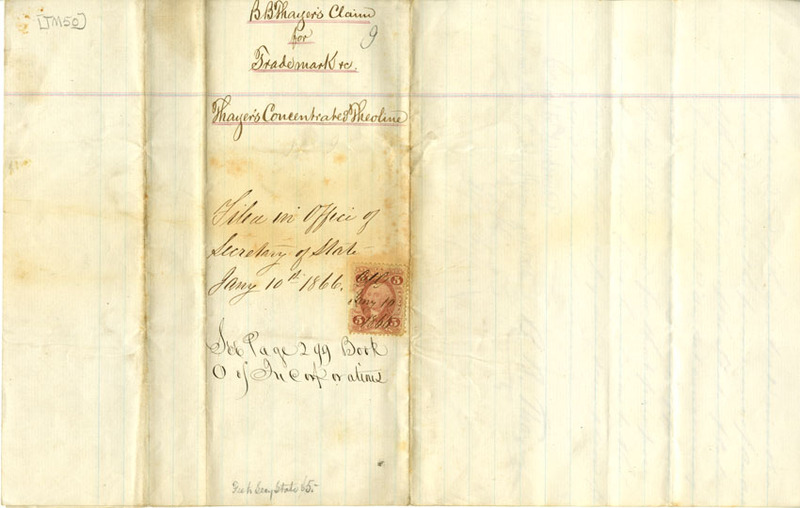 [TM50]
B B Thayer's Claim
for
9
Trademark &c.
Thayer's Concentrated Theoline
Filed in Office of
Secretary of State
Jany 10th 1866.
5
Jany 10
1866
5 5
See Page 299 Book
O of Incorporations
Secy State $5.-